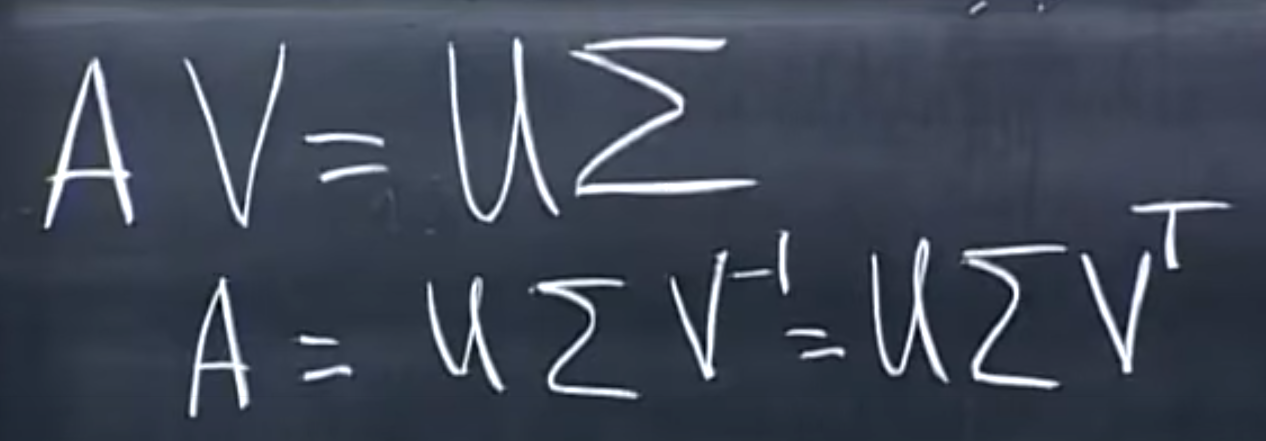 A V = U Σ
A = U Σ V⁻¹ = U Σ Vᵀ